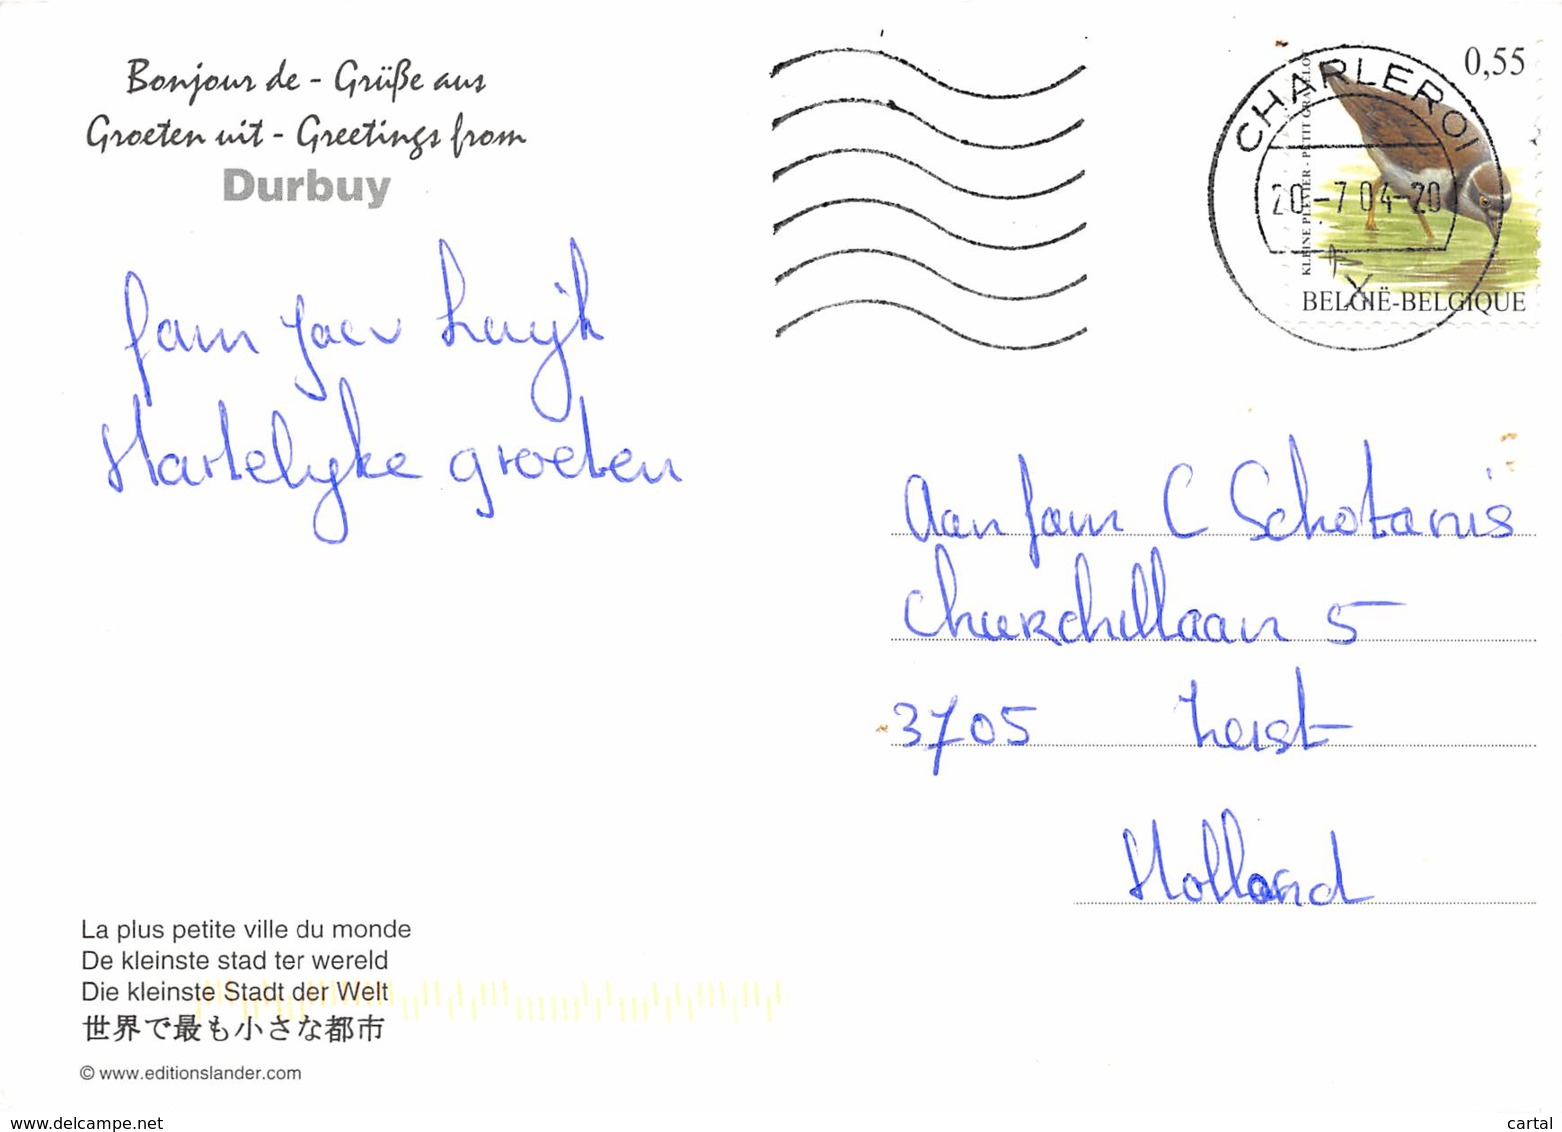 Bonjour de - Grüße aus
Groeten uit - Greetings from
Durbuy
fam
Hartelyke groeten
CHARLEROI
20 -7 04-20
X
0,55
KLEINE PLEVIER - PETIT GRAVELOT
BELGIË-BELGIQUE
Aan fam C Schotanus
Churchillaan 5
3705 Zeist
Holland
La plus petite ville du monde
De kleinste stad ter wereld
Die kleinste Stadt der Welt
世界で最も小さな都市
© www.editionslander.com
www.delcampe.net
cartal